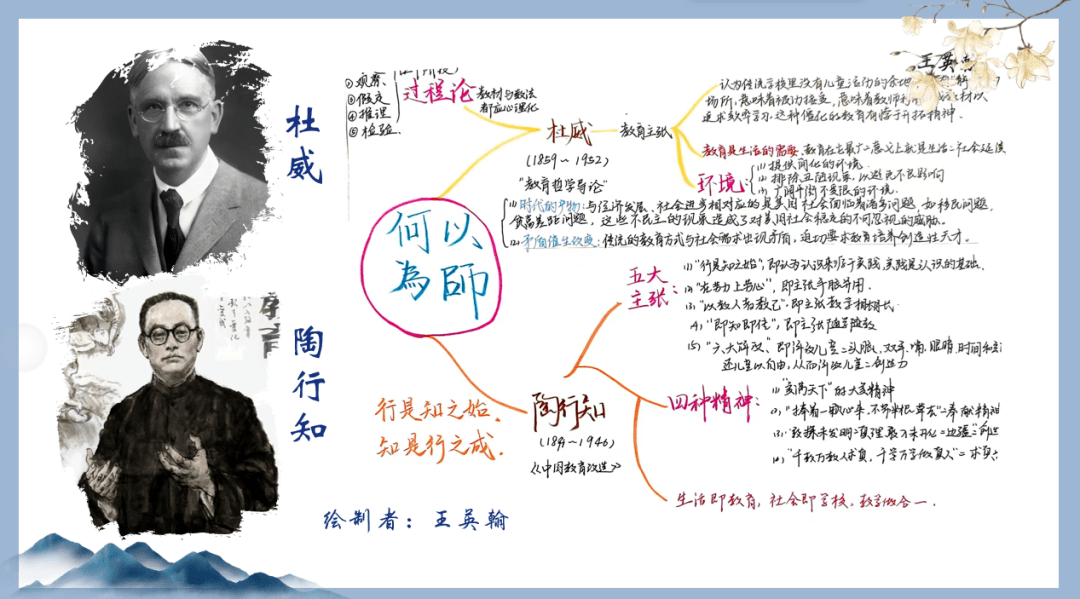 杜威
陶行知
何以
為師
绘制者：王英翰
王英
过程论
①观察
③假定
④推理
⑤检验
教材与教法
都应心理化
杜威
(1859～1952)
"教育哲学导论"
教育主张
认为传统学校里没有儿童活动的余地
场所，意味着被动接受，意味着教师
追求效率学习，这种僵化的教育有悖于开拓精神.
教育是生活的需要：教育在它最广之意义上就是生活之社会延续
环境：
(1) 提供简化的环境.
(2) 排除丑陋现象，以避免不良影响
(3) 广阔平衡不受限的环境.
(1) 时代的产物：与经济发展、社会进步相对应的是美国社会面临着诸多问题，如移民问题，
贫富差距问题，这些不民主的现象造成了对美国社会稳定的不可忽视的威胁.
(2) 矛盾催生改变：传统的教育方式与社会需求出现矛盾，迫切要求教育培养创造性人才.
五大
主张：
(1) "行是知之始"，即认为认识来源于实践，实践是认识的基础.
(2) "在劳力上劳心"，即主张手脑并用.
(3) "以教人者教己"，即主张教学相长
(4) "即知即传"，即主张随学随教
(5) "六大解放"，即解放儿童之头脑、双手、嘴、眼睛、时间和空
还儿童以自由，从而解放儿童之创造力
行是知之始.
知是行之成.
陶行知
～1946)
《中国教育改造》
四种精神：
(1) "爱满天下"的大爱精神
(2) "捧着一颗心来，不带半根草去"之奉献精神
(3) "敢探未发明之真理，敢入未开化之边疆"之创造
(4) "千教万教教人求真，千学万学学做真人"之求真
生活即教育，社会即学校，教学做合一.